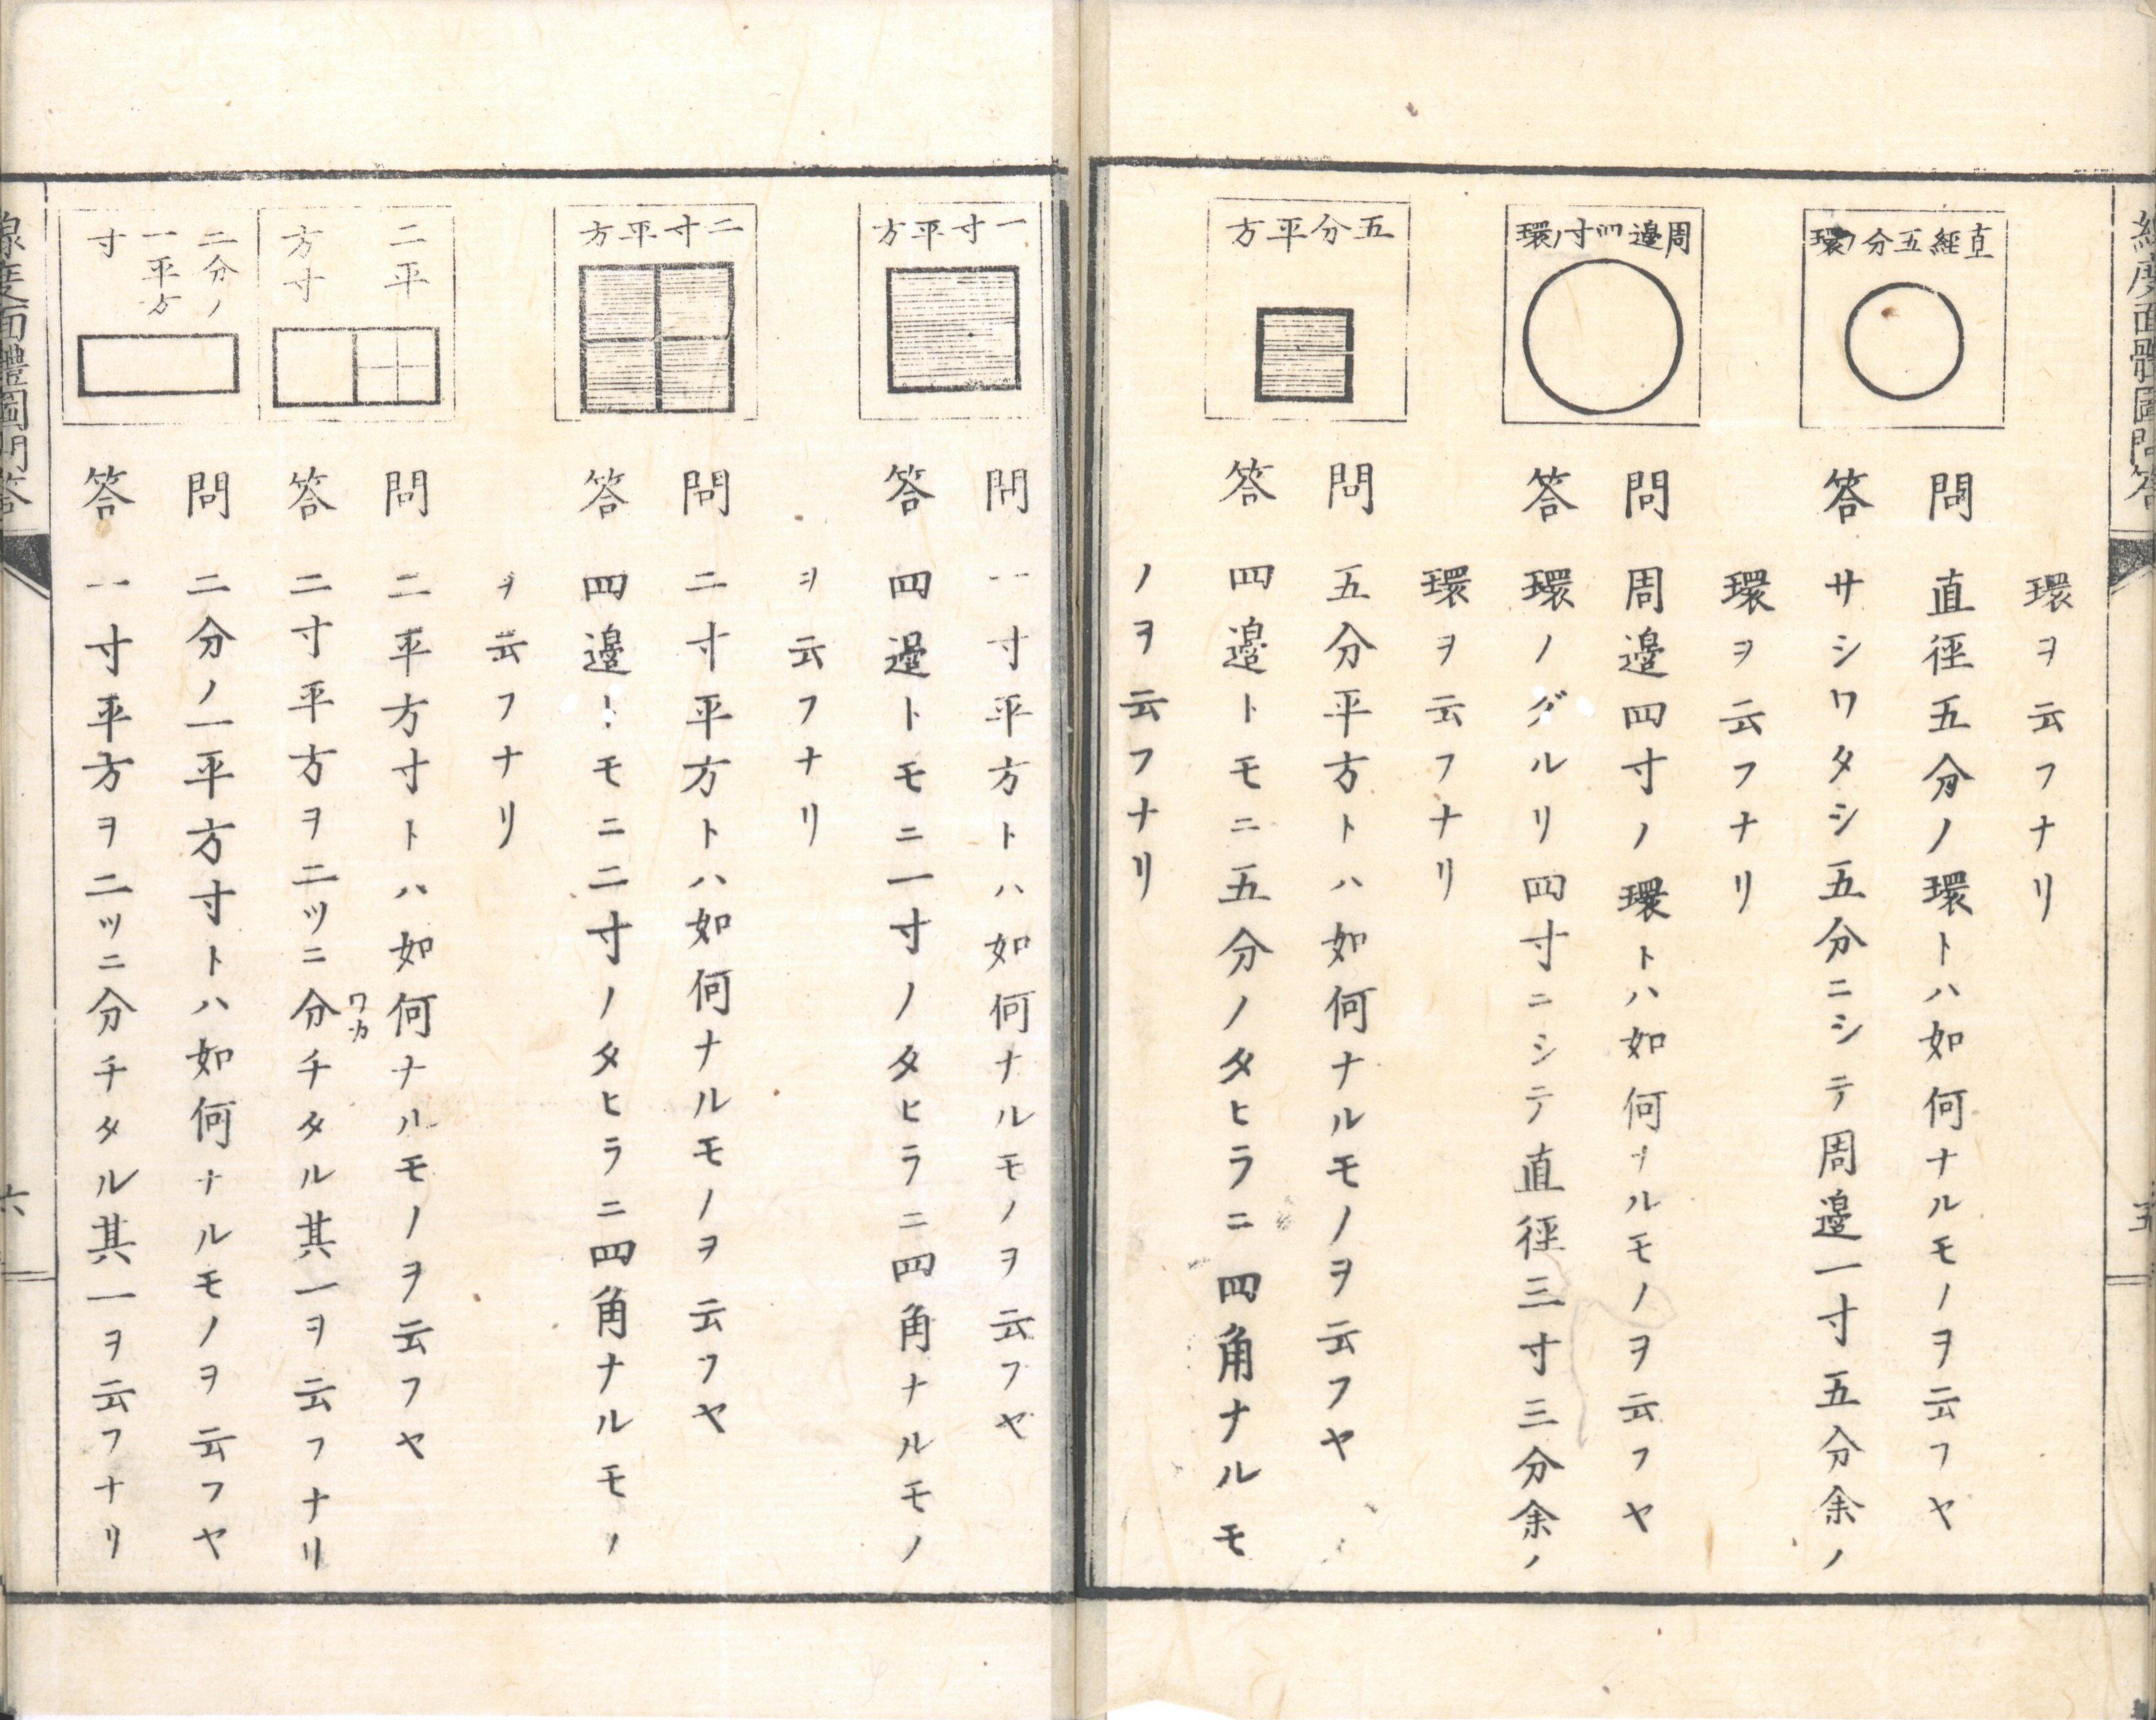 環ヲ云フナリ
直經五分ノ環
問 直徑五分ノ環トハ如何ナルモノヲ云フヤ
答 サシワタシ五分ニシテ周邉一寸五分余ノ
環ヲ云フナリ
周邉四寸ノ環
問 周邉四寸ノ環トハ如何ナルモノヲ云フヤ
答 環ノグルリ四寸ニシテ直徑三寸三分余ノ
環ヲ云フナリ
五分平方
問 五分平方トハ如何ナルモノヲ云フヤ
答 四邉トモニ五分ノタヒラニ四角ナルモ
ノヲ云フナリ
一寸平方
問 一寸平方トハ如何ナルモノヲ云フヤ
答 四邉トモニ一寸ノタヒラニ四角ナルモノ
ヲ云フナリ
二寸平方
問 二寸平方トハ如何ナルモノヲ云フヤ
答 四邉トモニ二寸ノタヒラニ四角ナルモノ
ヲ云フナリ
二平
方寸
問 二平方寸トハ如何ナルモノヲ云フヤ
答 二寸平方ヲ二ツニ分チタル其一ヲ云フナリ
ワカ
二分ノ
一平方
寸
問 二分ノ一平方寸トハ如何ナルモノヲ云フヤ
答 一寸平方ヲ二ツニ分チタル其一ヲ云フナリ
線度面體圖問答
六